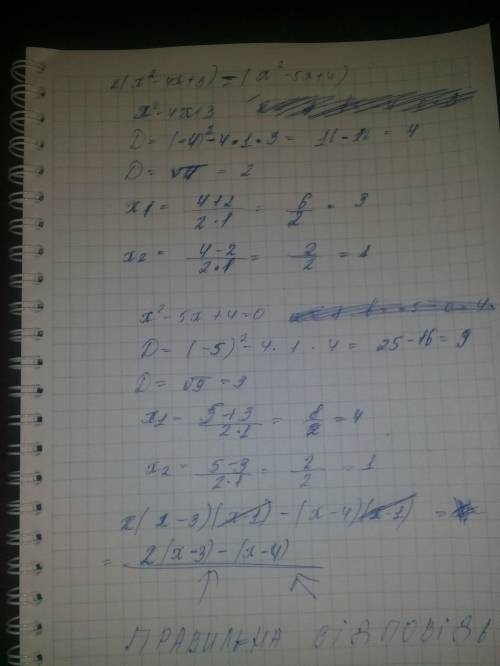 2(x²-4x+3)-(x²-5x+4)
x²-4x+3
D = (-4)²-4•1•3 = 16-12 = 4
D = √4 = 2
x1 = 4+2/2·1 = 6/2 = 3
x2 = 4-2/2•1 = 2/2 = 1
x²-5x+4=0
D = (-5)²-4·1·4 = 25-16=9
D = √9 = 3
x1 - 5+3/2·1 = 8/2 = 4
x2 = 5-3/2·1 = 2/2 = 1
2(x-3)(x-1)-(x-4)(x-1) =
= 2(x-3)-(x-4)
ПРАВИЛЬНА ВІДПОВІДЬ